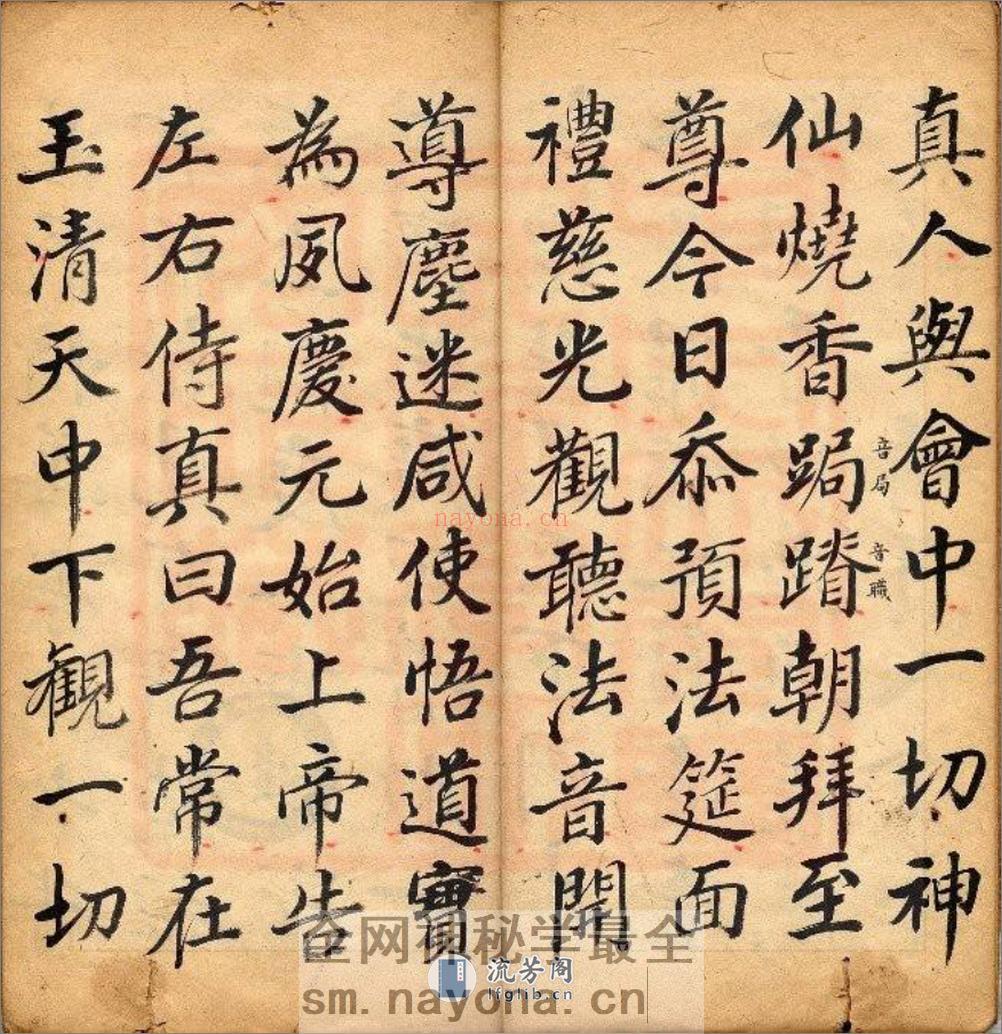 真人與會中一切神
仙燒香跼蹐朝拜至
音局
音職
尊今日忝預法筵面
禮慈光觀聽法音開
導塵迷咸使悟道實
為夙慶元始上帝告
左右侍真曰吾常在
玉清天中下観一切
nayona.cn
全网神秘学最全
流芳阁
lfglib.cn
sm.nayona.cn